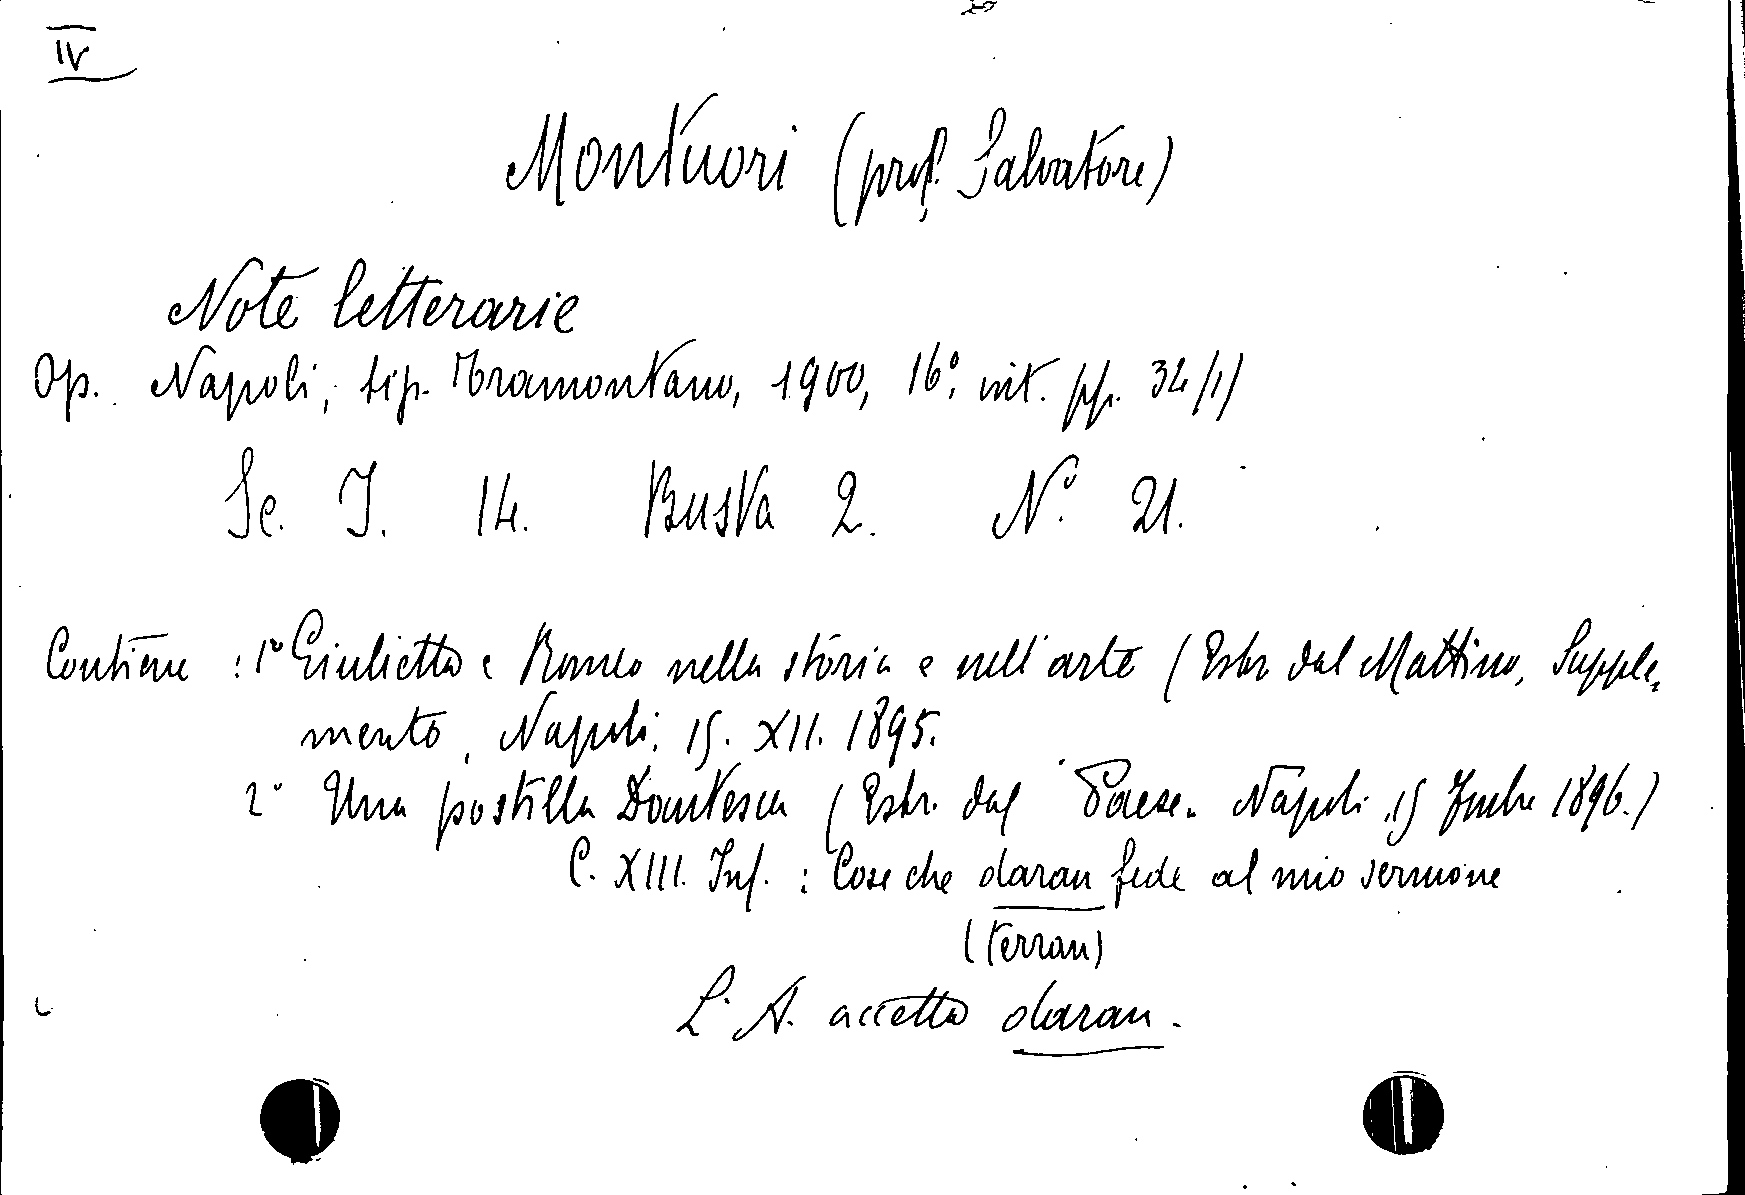 IV
Montuori (prof. Salvatore)
Note letterarie
Op. Napoli, tip. Tramontano, 1900, 16°, int. pp. 34/1/
Se. I. 14. Busta 2. N° 21.
Contiene : 1° Giulietta e Romeo nella storia e nell'arte (Estr. dal Mattino, Supple-
mento, Napoli, 15. XII. 1895.
2° Una postilla Dantesca (Estr. dal Paese. Napoli, 15 1896.)
C. XIII. Inf. : Cose che daran fede al mio sermone
(terran)
L'A. accetta daran.